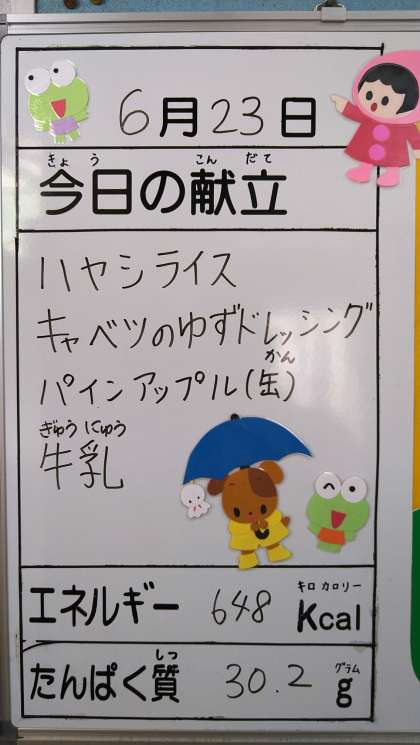 6月23日
きょう こんだて
今日の献立
ハヤシライス
キャベツのゆずドレッシング
かん
パインアップル(缶)
ぎゅうにゅう
牛乳
キロカロリー
エネルギー 648 Kcal
しつ グラム
たんぱく質 30.2 g